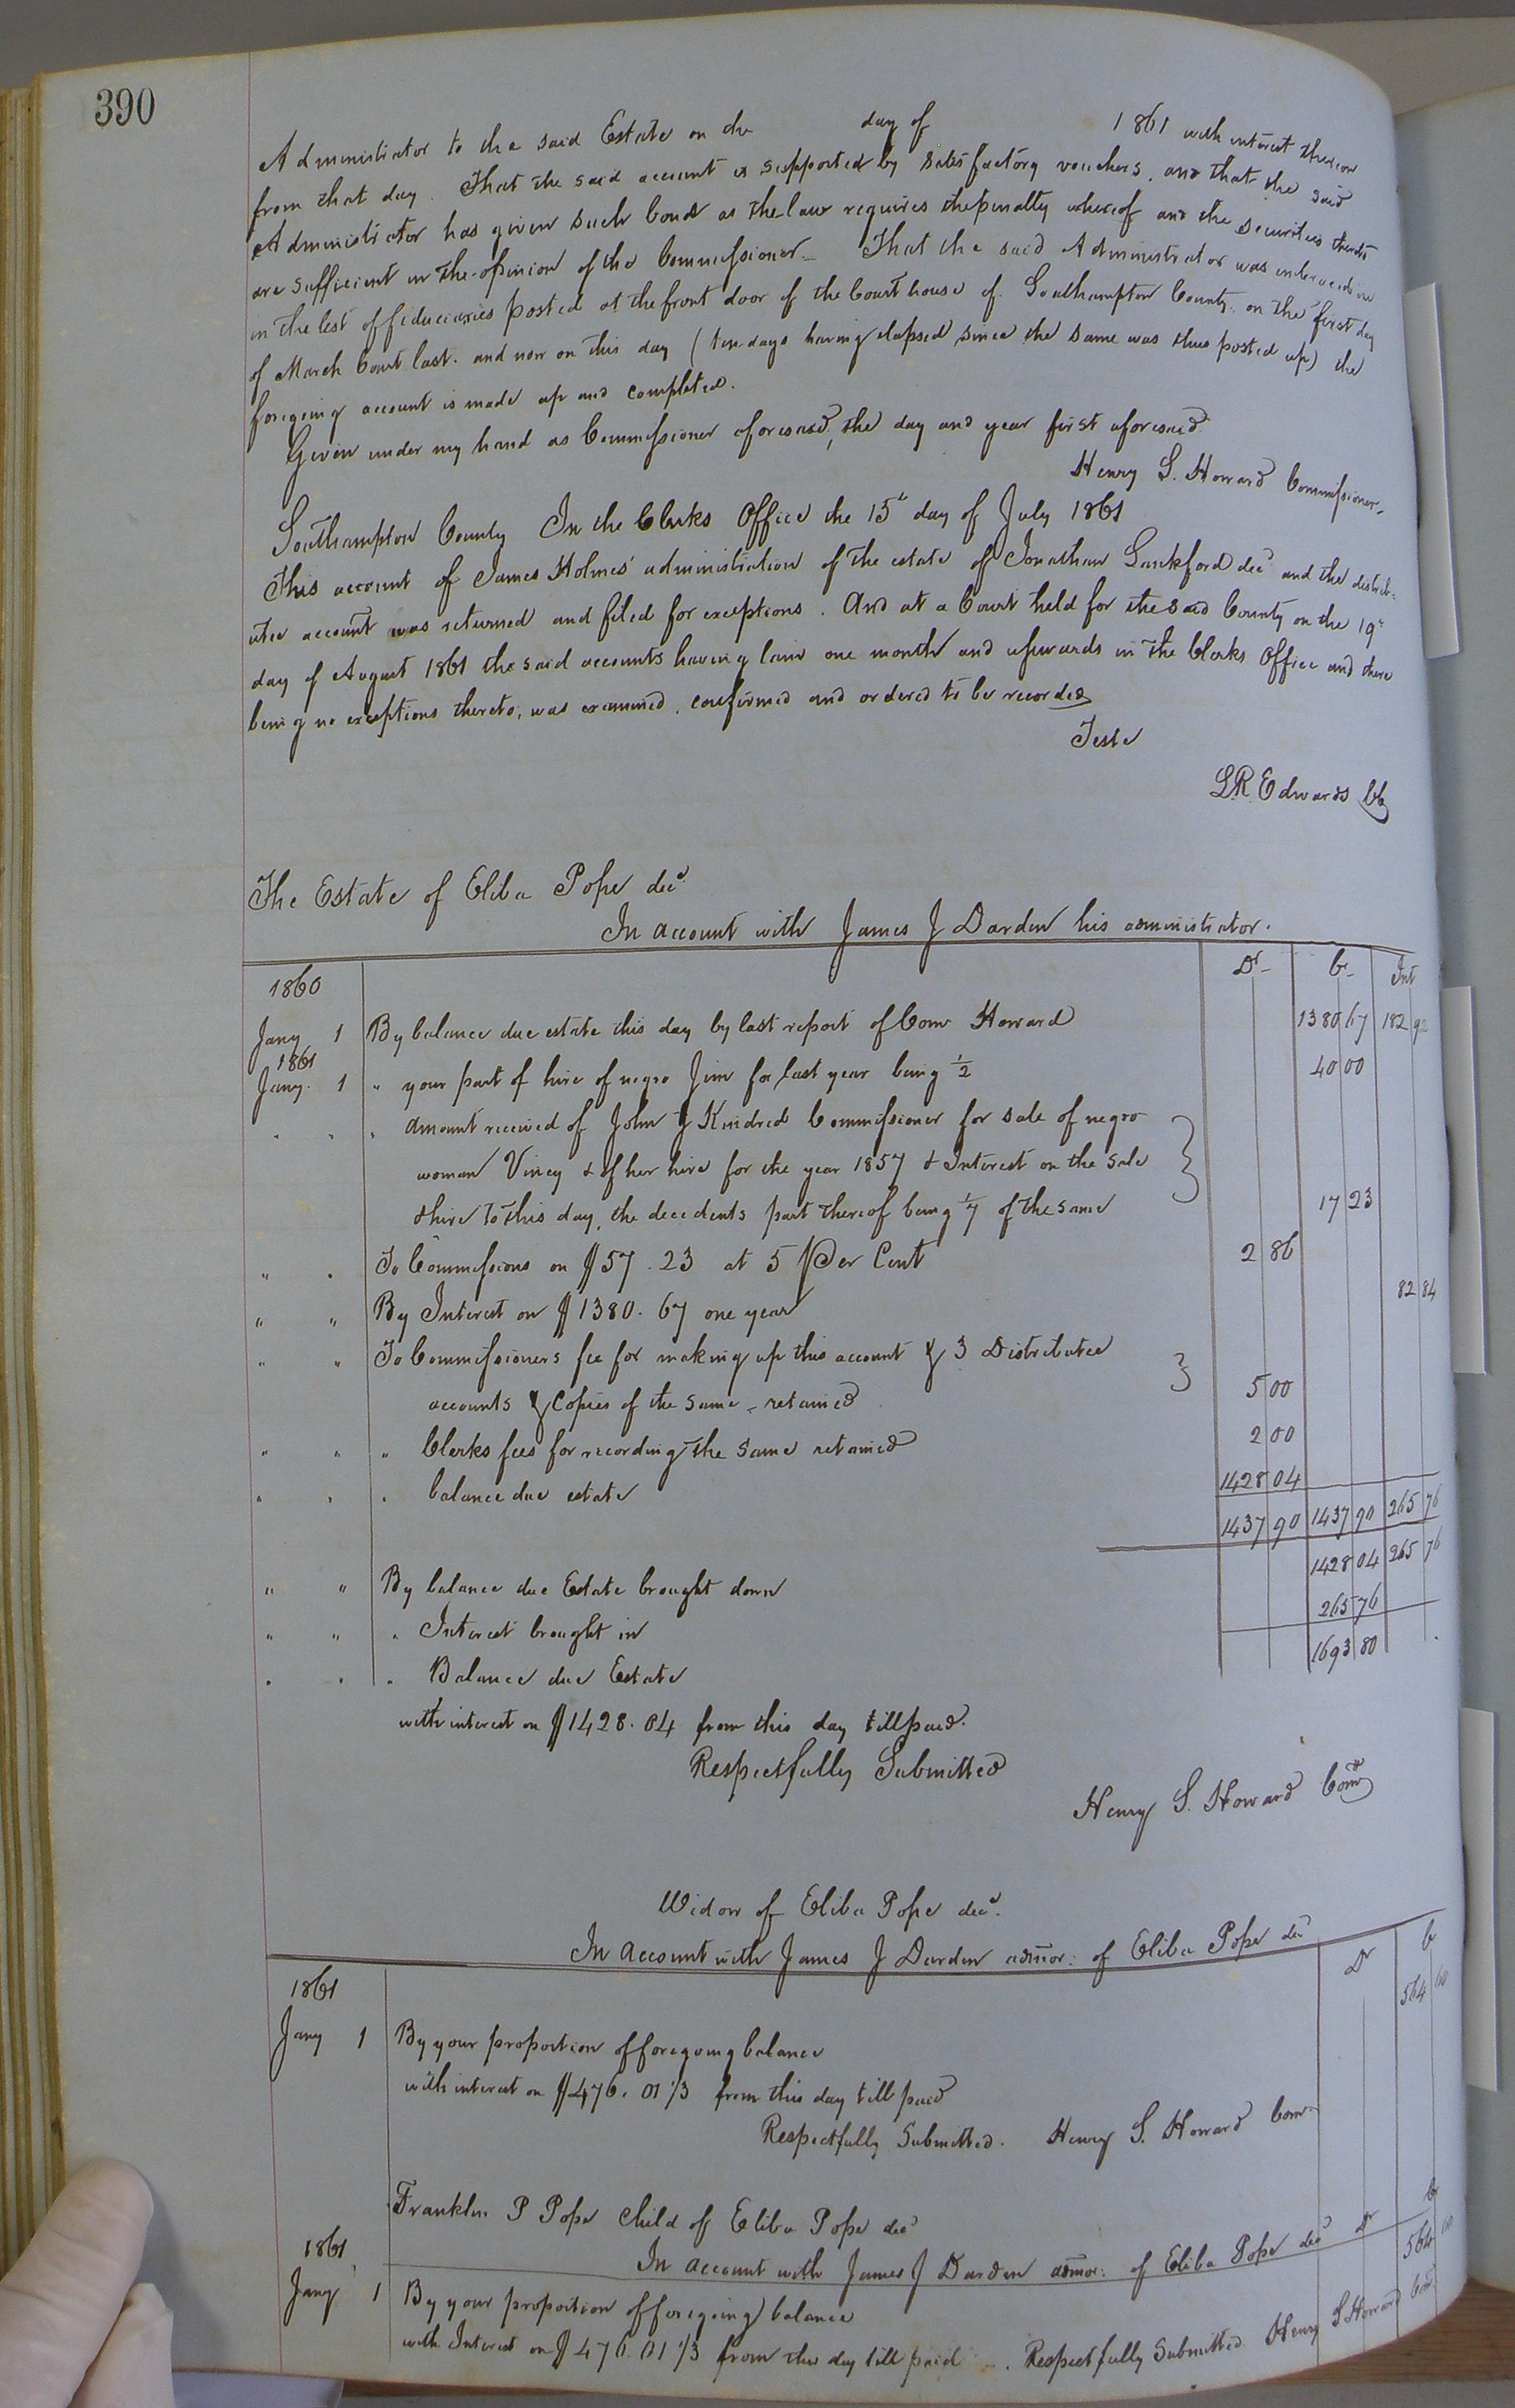 390
Administrator to the said Estate on the day of 1861 with interest thereon
from that day. That the said account is supported by satisfactory vouchers, and that the said
Administrator has given such bond as the law requires the penalty whereof and the securities thereto
are sufficient in the opinion of the Commissioner_ That the said Administrator was
in the list of fiduciaries posted at the front door of the Courthouse of Southampton County on the first day
of March Court last. and now on this day (ten days having elapsed since the same was thus posted up) the
foregoing account is made up and completed.
Given under my hand as Commissioner aforesaid, the day and year first aforesaid.
Henry S. Howard Commissioner.
Southampton County In the Clerks Office the 15th day of July 1861
This account of James Holmes' administration of the estate of Jonathan Lankford decd and the distrib-
utee account was returned and filed for exceptions. And at a Court held for the said County on the 19th
day of August 1861 the said accounts having lain one month and upwards in the Clerks Office and there
being no exceptions thereto, was examined, confirmed and ordered to be recorded
Teste
L R Edwards Ck
The Estate of Eliba Pope decd
In account with James J Darden his administrator.
Dr Cr Int
1860
Jany 1 By balance due estate this day by last report of Com Howard 1380 67 182 92
1861
Jany. 1 " your part of hire of negro Jim for last year being 1/2 40 00
" " " amount received of John J Kindred Commissioner for sale of negro
woman Viney & of her hire for the year 1857 & Interest on the sale
& hire to this day, the decedents part thereof being 1/7 of the same 17 23
" " To Commissions on $57.23 at 5 Per Cent 2 86
" " By Interest on $1380.67 one year 82 84
" " To Commissioners fee for making up this account & 3 Distributee
accounts & Copies of the same - retained 5 00
" " " Clerks fees for recording the same retained 2 00
" " " balance due estate 1428 04
1437 90 1437 90 265 76
" " By balance due Estate brought down 1428 04 265 76
" " " Interest brought in 265 76
" " " Balance due Estate 1693 80
with interest on $1428.04 from this day till paid.
Respectfully Submitted
Henry S. Howard Comr
Widow of Eliba Pope decd.
In Account with James J Darden admor: of Eliba Pope decd Dr Cr
1861
Jany 1 By your proportion of foregoing balance 564 60
with interest on $476.01 1/3 from this day till paid
Respectfully Submitted. Henry S. Howard Com
Franklin P Pope Child of Eliba Pope decd
In account with James J Darden admor: of Eliba Pope decd Dr Cr
1861
Jany 1 By your proportion of foregoing balance 564 60
with Interest on $476.01 1/3 from this day till paid _. Respectfully Submitted. Henry S Howard Com